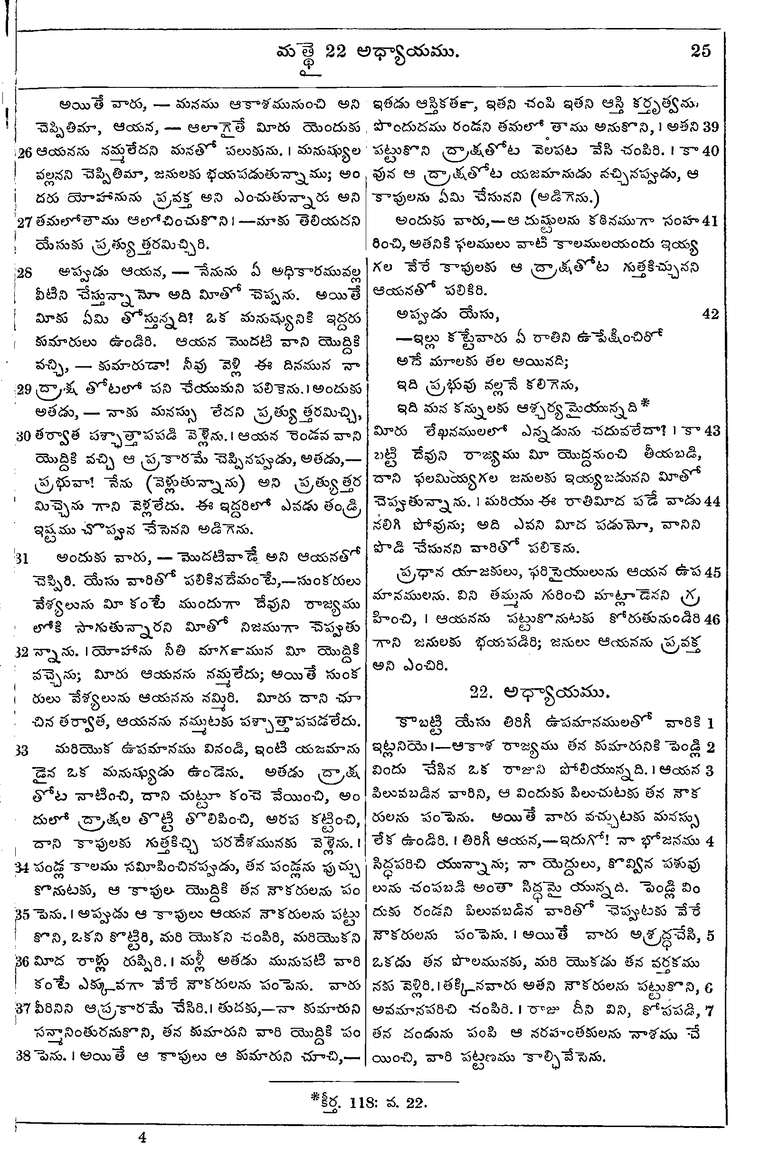 మత్థై 22 అధ్యాయము. 25
అయితే వారు, — మనము ఆకాశమునుంచి అని
చెప్పితిమా, ఆయన, — ఆలాగైతే మీరు యెందుకు
26 ఆయనను నమ్మలేదని మనతో పలుకును. । మనుష్యుల
వల్లనని చెప్పితిమా, జనులకు భయపడుతున్నాము; అం
దరు యోహానును ప్రవక్త అని ఎంచుతున్నారు అని
27 తమలోతాము ఆలోచించుకొని। —మాకు తెలియదని
యేసుకు ప్రత్యుత్తరమిచ్చిరి.
28 అప్పుడు ఆయన, — నేనును ఏ అధికారమువల్ల
వీటిని చేస్తున్నామో అది మీతో చెప్పను. అయితే
మీకు ఏమి తోస్తున్నది? ఒక మనుష్యునికి ఇద్దరు
కుమారులు ఉండిరి. ఆయన మొదటి వాని యొద్దికి
వచ్చి, — కుమారుడా! నీవు వెళ్లి ఈ దినమున నా
29 ద్రాక్ష తోటలో పని చేయుమని పలికెను. । అందుకు
అతడు, — నాకు మనస్సు లేదని ప్రత్యుత్తరమిచ్చి,
30 తర్వాత పశ్చాత్తాపపడి వెళ్లెను. । ఆయన రెండవ వాని
యొద్దికి వచ్చి ఆ ప్రకారమే చెప్పినప్పుడు, అతడు,—
ప్రభువా! నేను (వెళ్లుతున్నాను) అని ప్రత్యుత్తర
మిచ్చెను గాని వెళ్లలేదు. ఈ ఇద్దరిలో ఎవడు తండ్రి
ఇష్టము చొప్పున చేసెనని అడిగెను.
31 అందుకు వారు, — మొదటివాడే అని ఆయనతో
చెప్పిరి. యేసు వారితో పలికినదేమంటే,—సుంకరులు
వేశ్యలును మీ కంటే ముందుగా దేవుని రాజ్యము
లోకి సాగుతున్నారని మీతో నిజముగా చెప్పుతు
32 న్నాను. । యోహాను నీతి మార్గమున మీ యొద్దికి
వచ్చెను; మీరు ఆయనను నమ్మలేదు; అయితే సుంక
రులు వేశ్యలును ఆయనను నమ్మిరి. మీరు దాని చూ
చిన తర్వాత, ఆయనను నమ్ముటకు పశ్చాత్తాపపడలేదు.
33 మరియొక ఉపమానము వినండి, ఇంటి యజమాను
డైన ఒక మనుష్యుడు ఉండెను. అతడు ద్రాక్ష
తోట నాటించి, దాని చుట్టూ కంచె వేయించి, అం
దులో ద్రాక్షల తొట్టి తొలిపించి, అరప కట్టించి,
దాని కాపులకు గుత్తకిచ్చి పరదేశమునకు వెళ్లెను. ।
34 పండ్ల కాలము సమీపించినప్పుడు, తన పండ్లను పుచ్చు
కొనుటకు, ఆ కాపుల యొద్దికి తన నౌకరులను పం
35 పెను. । అప్పుడు ఆ కాపులు ఆయన నౌకరులను పట్టు
కొని, ఒకని కొట్టిరి, మరి యొకని చంపిరి, మరియొకని
36 మీద రాళ్లు రువ్విరి. । మళ్లీ అతడు మునుపటి వారి
కంటే ఎక్కువగా వేరే నౌకరులను పంపెను. వారు
37 వీరినిని ఆప్రకారమే చేసిరి. । తుదకు,—నా కుమారుని
సన్మానింతురనుకొని, తన కుమారుని వారి యొద్దికి పం
38 పెను. । అయితే ఆ కాపులు ఆ కుమారుని చూచి,—
ఇతడు ఆస్తికర్త, ఇతని చంపి ఇతని ఆస్తి కర్తృత్వము
పొందుదము రండని తమలో తాము అనుకొని, । అతని 39
పట్టుకొని ద్రాక్షతోట వెలపట వేసి చంపిరి. । కా 40
వున ఆ ద్రాక్షతోట యజమానుడు వచ్చినప్పుడు, ఆ
కాపులను ఏమి చేసునని (అడిగెను.)
అందుకు వారు,—ఆ దుష్టులను కఠినముగా సంహ 41
రించి, అతనికి ఫలములు వాటి కాలములయందు ఇయ్య
గల వేరే కాపులకు ఆ ద్రాక్షతోట గుత్తకిచ్చునని
ఆయనతో పలికిరి.
అప్పుడు యేసు, 42
—ఇల్లు కట్టేవారు ఏ రాతిని ఉపేక్షించిరో
అదే మూలకు తల అయినది;
ఇది ప్రభువు వల్లనే కలిగెను,
ఇది మన కన్నులకు ఆశ్చర్యమైయున్నది*
మీరు లేఖనములలో ఎన్నడును చదువలేదా? । కా 43
బట్టి దేవుని రాజ్యము మీ యొద్దనుంచి తీయబడి,
దాని ఫలమియ్యగల జనులకు ఇయ్యబడునని మీతో
చెప్పుతున్నాను. । మరియు ఈ రాతిమీద పడే వాడు 44
నలిగి పోవును; అది ఎవని మీద పడుమో, వానిని
పొడి చేసునని వారితో పలికెను.
ప్రధాన యాజకులు, ఫరిసైయులును ఆయన ఉప 45
మానములను. విని తమ్మును గురించి మాట్లాడెనని గ్ర
హించి, । ఆయనను పట్టుకొనుటకు కోరుతునుండిరి 46
గాని జనులకు భయపడిరి; జనులు ఆయనను ప్రవక్త
అని ఎంచిరి.
22. అధ్యాయము.
కాబట్టి యేసు తిరిగీ ఉపమానములతో వారికి 1
ఇట్లనియె।—ఆకాశ రాజ్యము తన కుమారునికి పెండ్లి 2
విందు చేసిన ఒక రాజుని పోలియున్నది. । ఆయన 3
పిలువబడిన వారిని, ఆ విందుకు పిలుచుటకు తన నౌక
రులను పంపెను. అయితే వారు వచ్చుటకు మనస్సు
లేక ఉండిరి. । తిరిగీ ఆయన,—ఇదుగో! నా భోజనము 4
సిద్ధపరిచి యున్నాను; నా యెద్దులు, కొవ్విన పశువు
లును చంపబడి అంతా సిద్ధమై యున్నది. పెండ్లి విం
దుకు రండని పిలువబడిన వారితో చెప్పుటకు వేరే
నౌకరులను పంపెను. । అయితే వారు అశ్రద్ధచేసి, 5
ఒకడు తన పొలమునకు, మరి యొకడు తన వర్తకము
నకు వెళ్లిరి. । తక్కినవారు అతని నౌకరులను పట్టుకొని, 6
అవమానపరిచి చంపిరి. । రాజు దీని విని, కోపపడి, 7
తన దండును పంపి ఆ నరహంతకులను నాశము చే
యించి, వారి పట్టణము కాల్చివేసెను.
*కీర్త. 118: వ. 22.
4